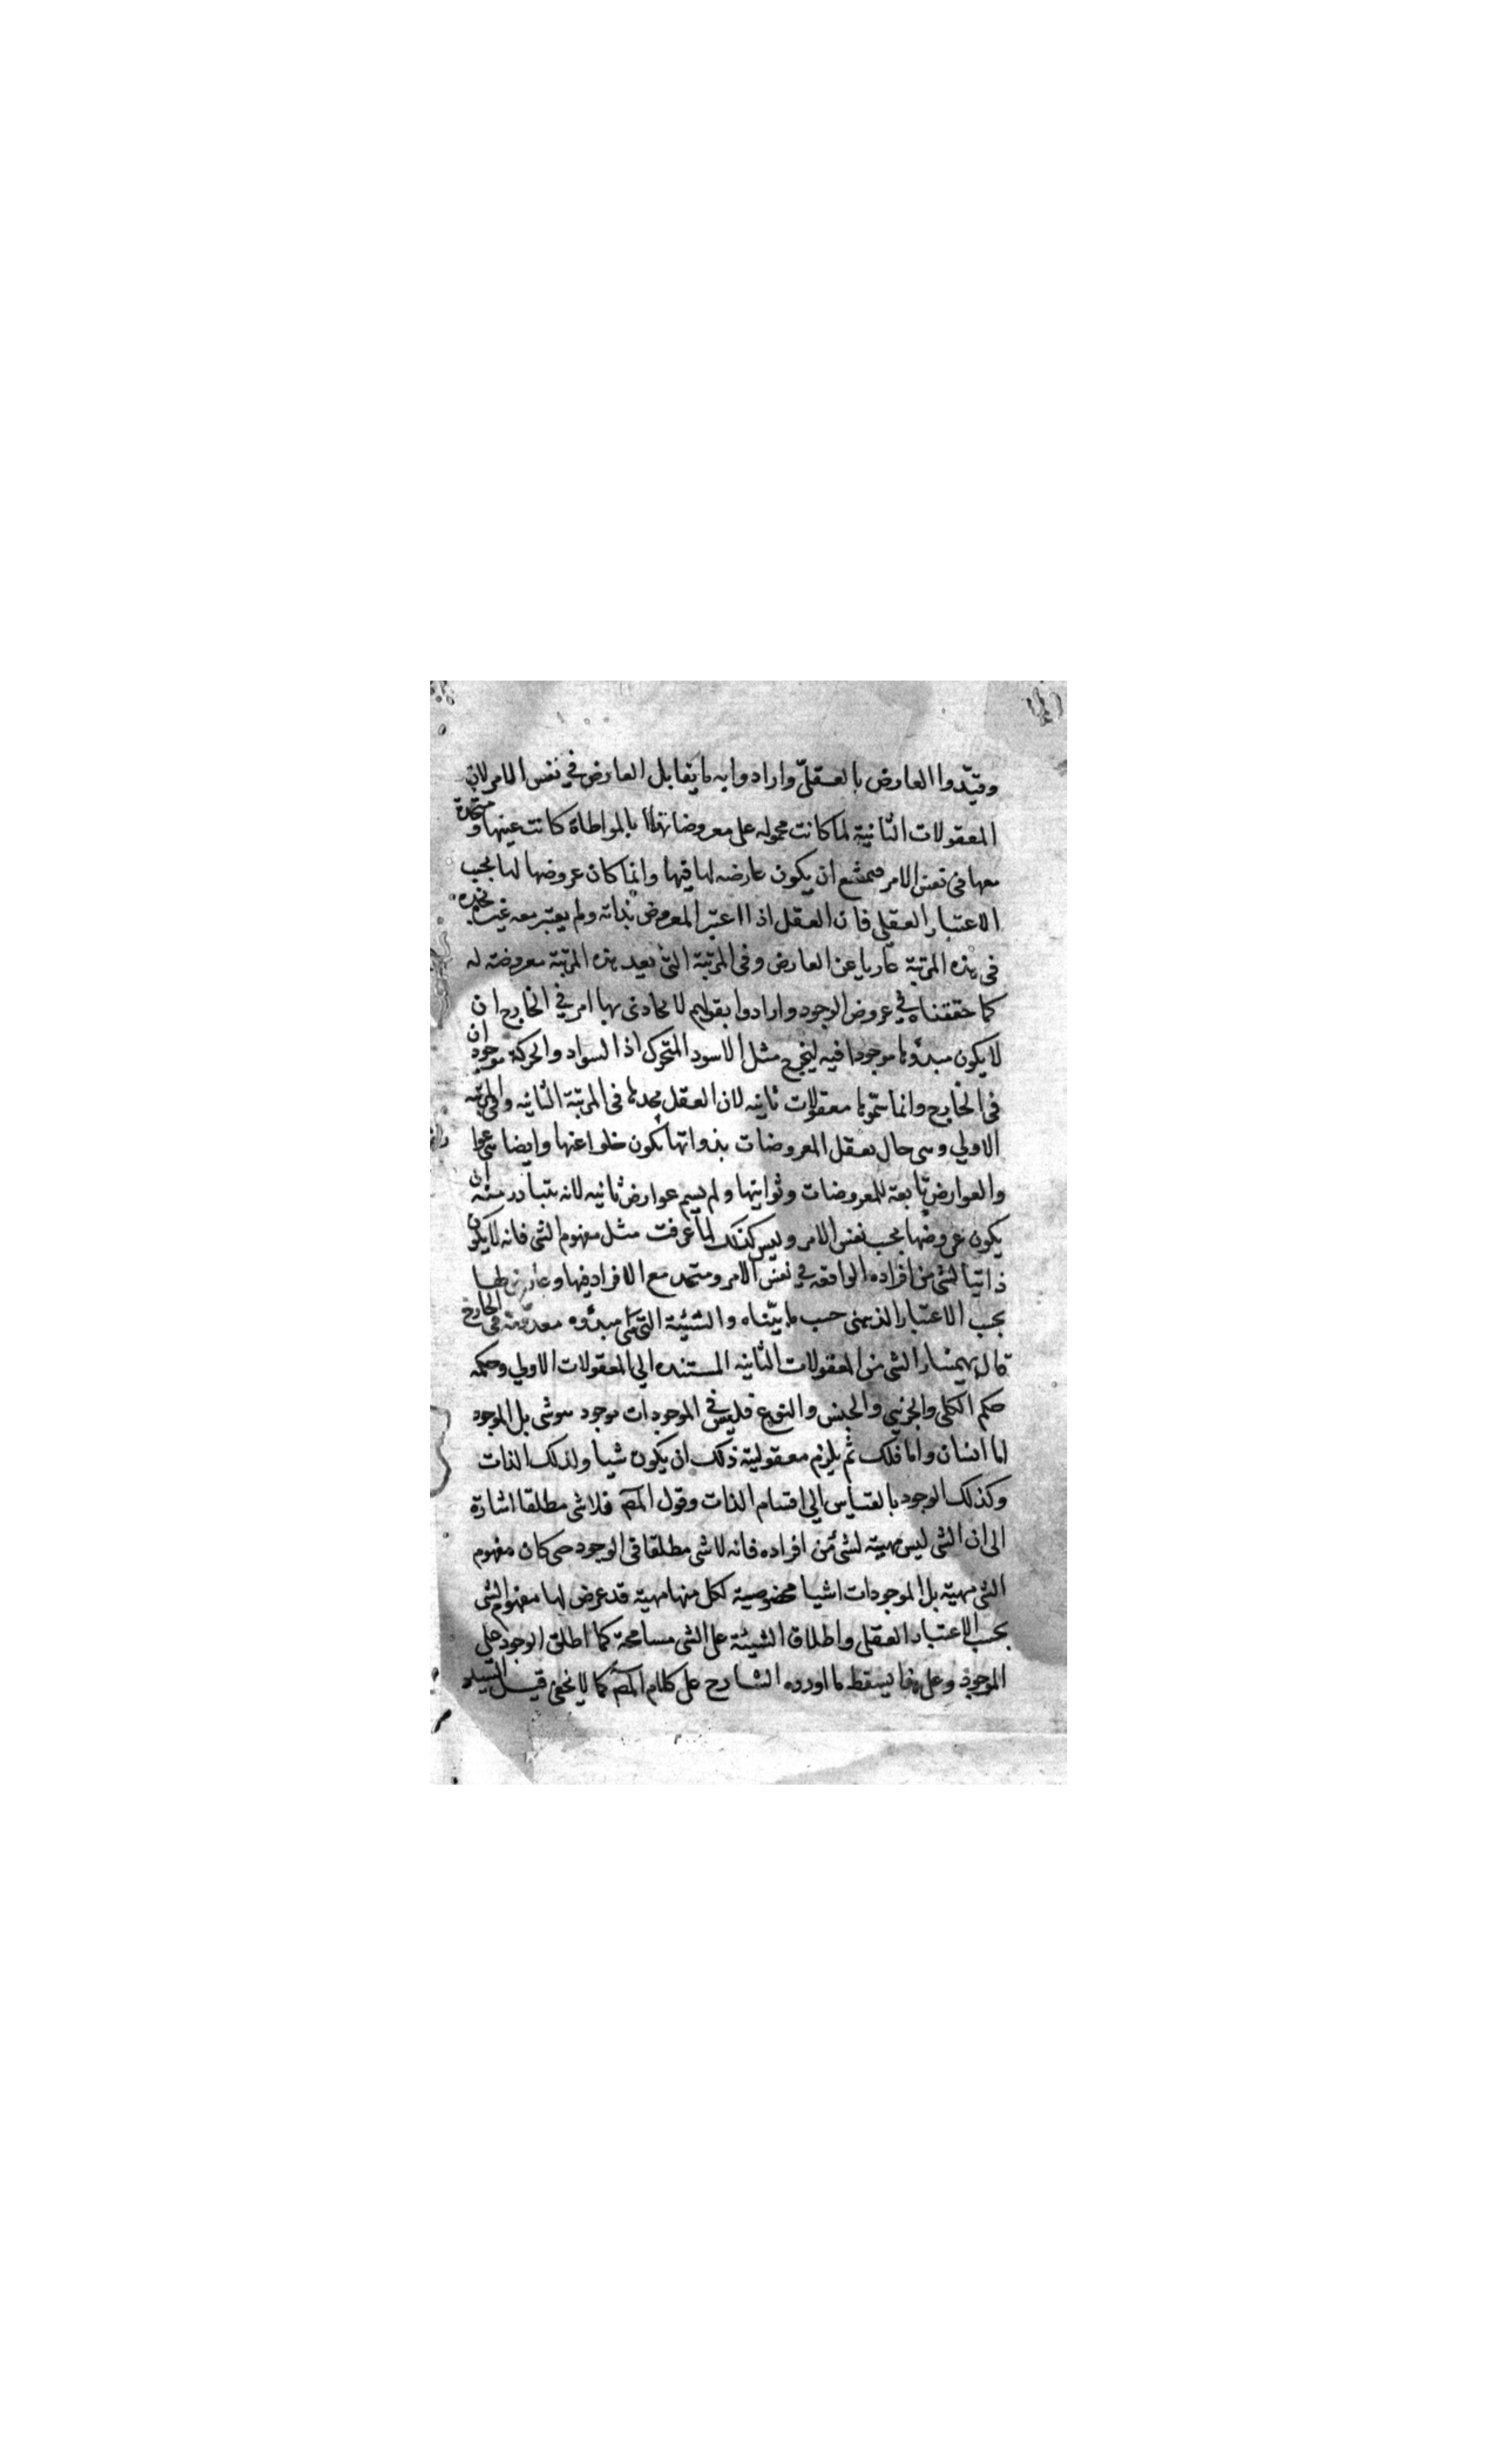 وقيّدوا العارض بالعقليّ وارادوا به ما يقابل العارض في نفس الامر لان
المعقولات الثانية لما كانت محمولة على معروضاتها بالمواطاة كانت عينها ومتحدة
معها في نفس الامر فيمتنع ان يكون عارضه لها فيها وانما كان عروضها لها بحسب
الاعتبار العقلي فان العقل اذا اعتبر المعروض بذاته ولم يعتبر معه غيره يجده
في هذه المرتبة عاريا عن العارض وفي المرتبة التي بعد هذه المرتبة معروضة له
كما حققناه في عروض الوجود وارادوا بقولهم لا يحاذى بها امر في الخارج ان
لا يكون مبدؤها موجودا فيه ليخرج مثل الاسود المتحرك اذ السواد والحركة موجودان
في الخارج وانما سمّوها معقولات ثانيه لان العقل يجدها في المرتبة الثانيه وفي المرتبه
الاولي وهي حال تعقل المعروضات بذواتها يكون خلوا عنها وايضا هي
والعوارض تابعة للمعروضات وثوانيها ولم يسم عوارض ثانيه لانه يتبادر منه ان
يكون عروضها بحسب نفس الامر وليس كذلك لما عرفت مثل مفهوم الشي فانه لا يكون
ذاتيا لشي من افراده الواقعه في نفس الامر ومتحد مع الافراد فيها وعارض لها
بحسب الاعتبار الذهني حسب ما بيّناه والشيئية التي هي مبدؤه معدومة في الخارج
قال بهمنيار الشي من المعقولات الثانيه المستنده الي المعقولات الاولي وحكمه
حكم الكلي والجزئي والجنس والنوع فليس في الموجودات موجود هو شي بل الموجود
اما انسان واما فلك ثم يلزم معقولية ذلك ان يكون شيا وكذلك الذات
وكذلك الوجود بالقياس الي اقسام الذات وقول المص فلا شي مطلقا اشارة
الى ان الشي ليس مهية لشي من افراده فانه لا شي مطلقا في الوجود حتى كان مفهوم
الشي مهية بل الموجودات اشيا مخصوصية لكل منها مهية قد عرض لها مفهوم الشي
بحسب الاعتبار العقلي واطلاق الشيئية على الشي مسامحة كما اطلق الوجود على
الموجود وعلى هذا يسقط ما اورده الشارح على كلام المص كما لا يخفى قيل السيد